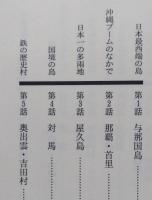 日本最西端の島
第1話 与那国島
沖縄ブームのなかで
第2話 那覇・首里
日本一の多雨地
第3話 屋久島
国境の島
第4話 対馬
鉄の歴史村
第5話 奥出雲・吉田村